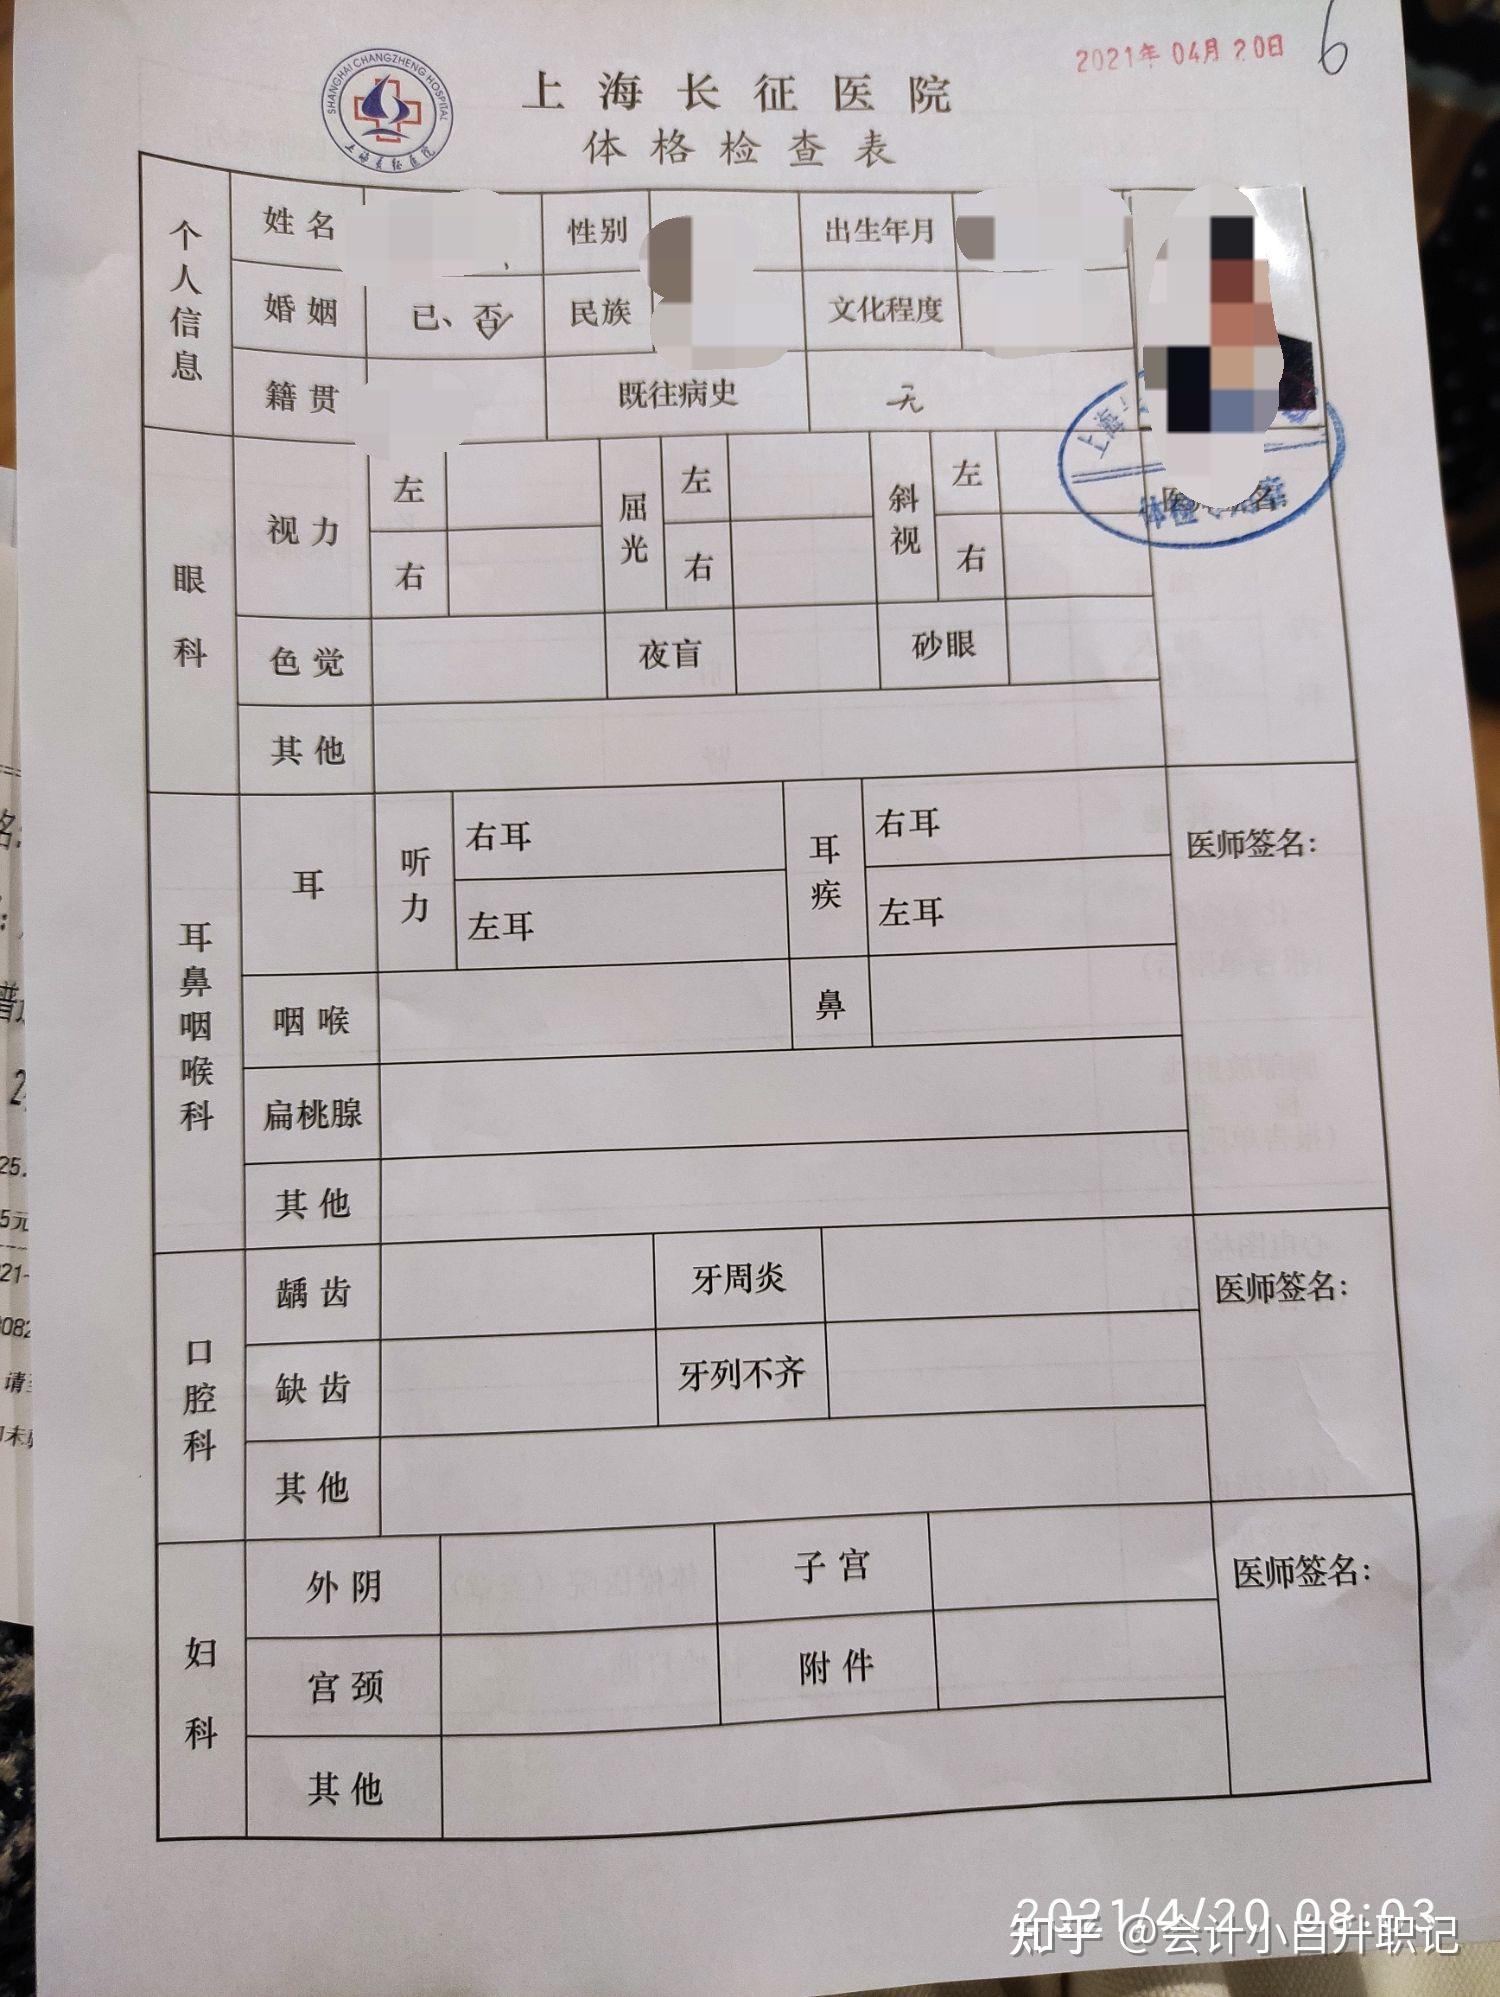 2021年 04月 20日
6
SHANGHAI CHANGZHENG HOSPITAL
上海长征医院
上海长征医院
体格检查表
个人信息
姓名 性别 出生年月
婚姻 已、否 民族 文化程度
籍贯 既往病史 无
眼科
视力 左 屈光 左 斜视 左
右 右 右
上海
体检
色觉 夜盲 砂眼
其他
耳鼻咽喉科
耳 听力 右耳 耳疾 右耳 医师签名：
左耳 左耳
咽喉 鼻
扁桃腺
其他
口腔科
龋齿 牙周炎 医师签名：
缺齿 牙列不齐
其他
妇科
外阴 子宫 医师签名：
宫颈 附件
其他
2021/4/20 08:03
知乎 @会计小白升职记